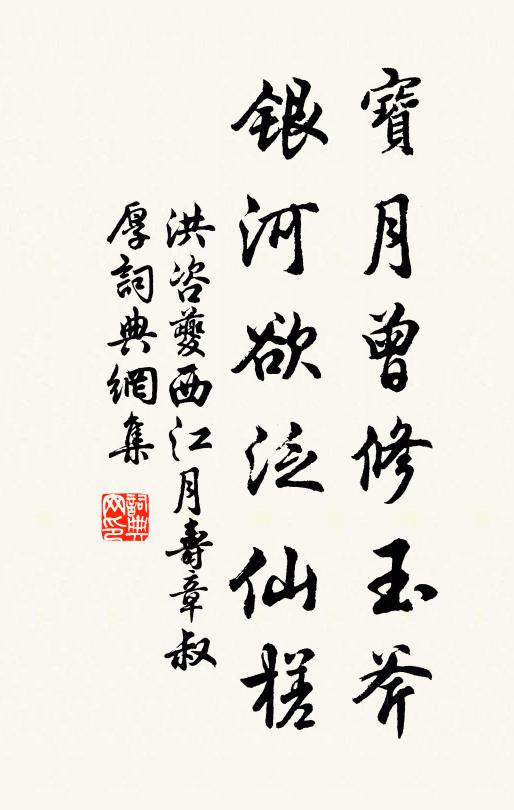 寶月曾修玉斧
銀河欲泛仙槎
洪咨夔西江月壽章叔
厚詞典網集
詞典網印